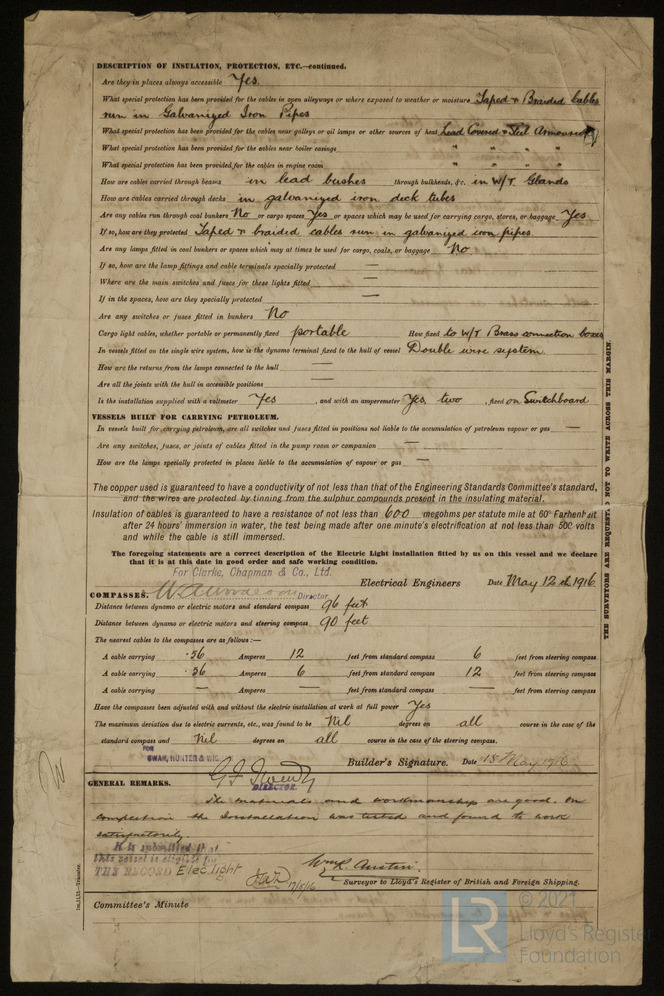 DESCRIPTION OF INSULATION, PROTECTION, ETC.—continued.
Are they in places always accessible Yes.
What special protection has been provided for the cables in open alleyways or where exposed to weather or moisture Taped & Braided Cables
run in Galvanized Iron Pipes
What special protection has been provided for the cables near galleys or oil lamps or other sources of heat Lead Covered & Steel Armoured
What special protection has been provided for the cables near boiler casings " " " "
What special protection has been provided for the cables in engine room " " " "
How are cables carried through beams in lead bushes through bulkheads, &c. in W/T Glands
How are cables carried through decks in galvanized iron deck tubes
Are any cables run through coal bunkers No or cargo spaces Yes or spaces which may be used for carrying cargo, stores, or baggage Yes
If so, how are they protected Taped & braided cables run in galvanized iron pipes
Are any lamps fitted in coal bunkers or spaces which may at times be used for cargo, coals, or baggage No
If so, how are the lamp fittings and cable terminals specially protected —
Where are the main switches and fuses for these lights fitted —
If in the spaces, how are they specially protected —
Are any switches or fuses fitted in bunkers No
Cargo light cables, whether portable or permanently fixed portable How fixed to W/T Brass connection boxes
In vessels fitted on the single wire system, how is the dynamo terminal fixed to the hull of vessel Double wire system
How are the returns from the lamps connected to the hull —
Are all the joints with the hull in accessible positions —
Is the installation supplied with a voltmeter Yes , and with an amperemeter Yes, two , fixed on Switchboard
VESSELS BUILT FOR CARRYING PETROLEUM.
In vessels built for carrying petroleum, are all switches and fuses fitted in positions not liable to the accumulation of petroleum vapour or gas —
Are any switches, fuses, or joints of cables fitted in the pump room or companion —
How are the lamps specially protected in places liable to the accumulation of vapour or gas —
The copper used is guaranteed to have a conductivity of not less than that of the Engineering Standards Committee's standard,
and the wires are protected by tinning from the sulphur compounds present in the insulating material.
Insulation of cables is guaranteed to have a resistance of not less than 600 megohms per statute mile at 60° Farhenheit
after 24 hours' immersion in water, the test being made after one minute's electrification at not less than 500 volts
and while the cable is still immersed.
The foregoing statements are a correct description of the Electric Light installation fitted by us on this vessel and we declare
that it is at this date in good order and safe working condition.
For Clarke, Chapman & Co., Ltd.
Electrical Engineers Date May 12th 1916
Director
COMPASSES.
Distance between dynamo or electric motors and standard compass 96 feet
Distance between dynamo or electric motors and steering compass 90 feet
The nearest cables to the compasses are as follows:—
A cable carrying .56 Amperes 12 feet from standard compass 6 feet from steering compass
A cable carrying .56 Amperes 6 feet from standard compass 12 feet from steering compass
A cable carrying — Amperes — feet from standard compass — feet from steering compass
Have the compasses been adjusted with and without the electric installation at work at full power Yes
The maximum deviation due to electric currents, etc., was found to be Nil degrees on all course in the case of the
standard compass and Nil degrees on all course in the case of the steering compass.
FOR
SWAN, HUNTER & WIG.
Builder's Signature. Date 15 May 1916
DIRECTOR.
GENERAL REMARKS.
The materials and workmanship are good. On
completion the Installation was tested and found to work
satisfactorily.
It is submitted that
this vessel is eligible for
THE RECORD Elec light
17/5/16
Wm R. Austin.
Surveyor to Lloyd's Register of British and Foreign Shipping.
Committee's Minute
THE SURVEYORS ARE REQUESTED NOT TO WRITE ACROSS THIS MARGIN
LR
© 2021
Lloyd's Register
Foundation